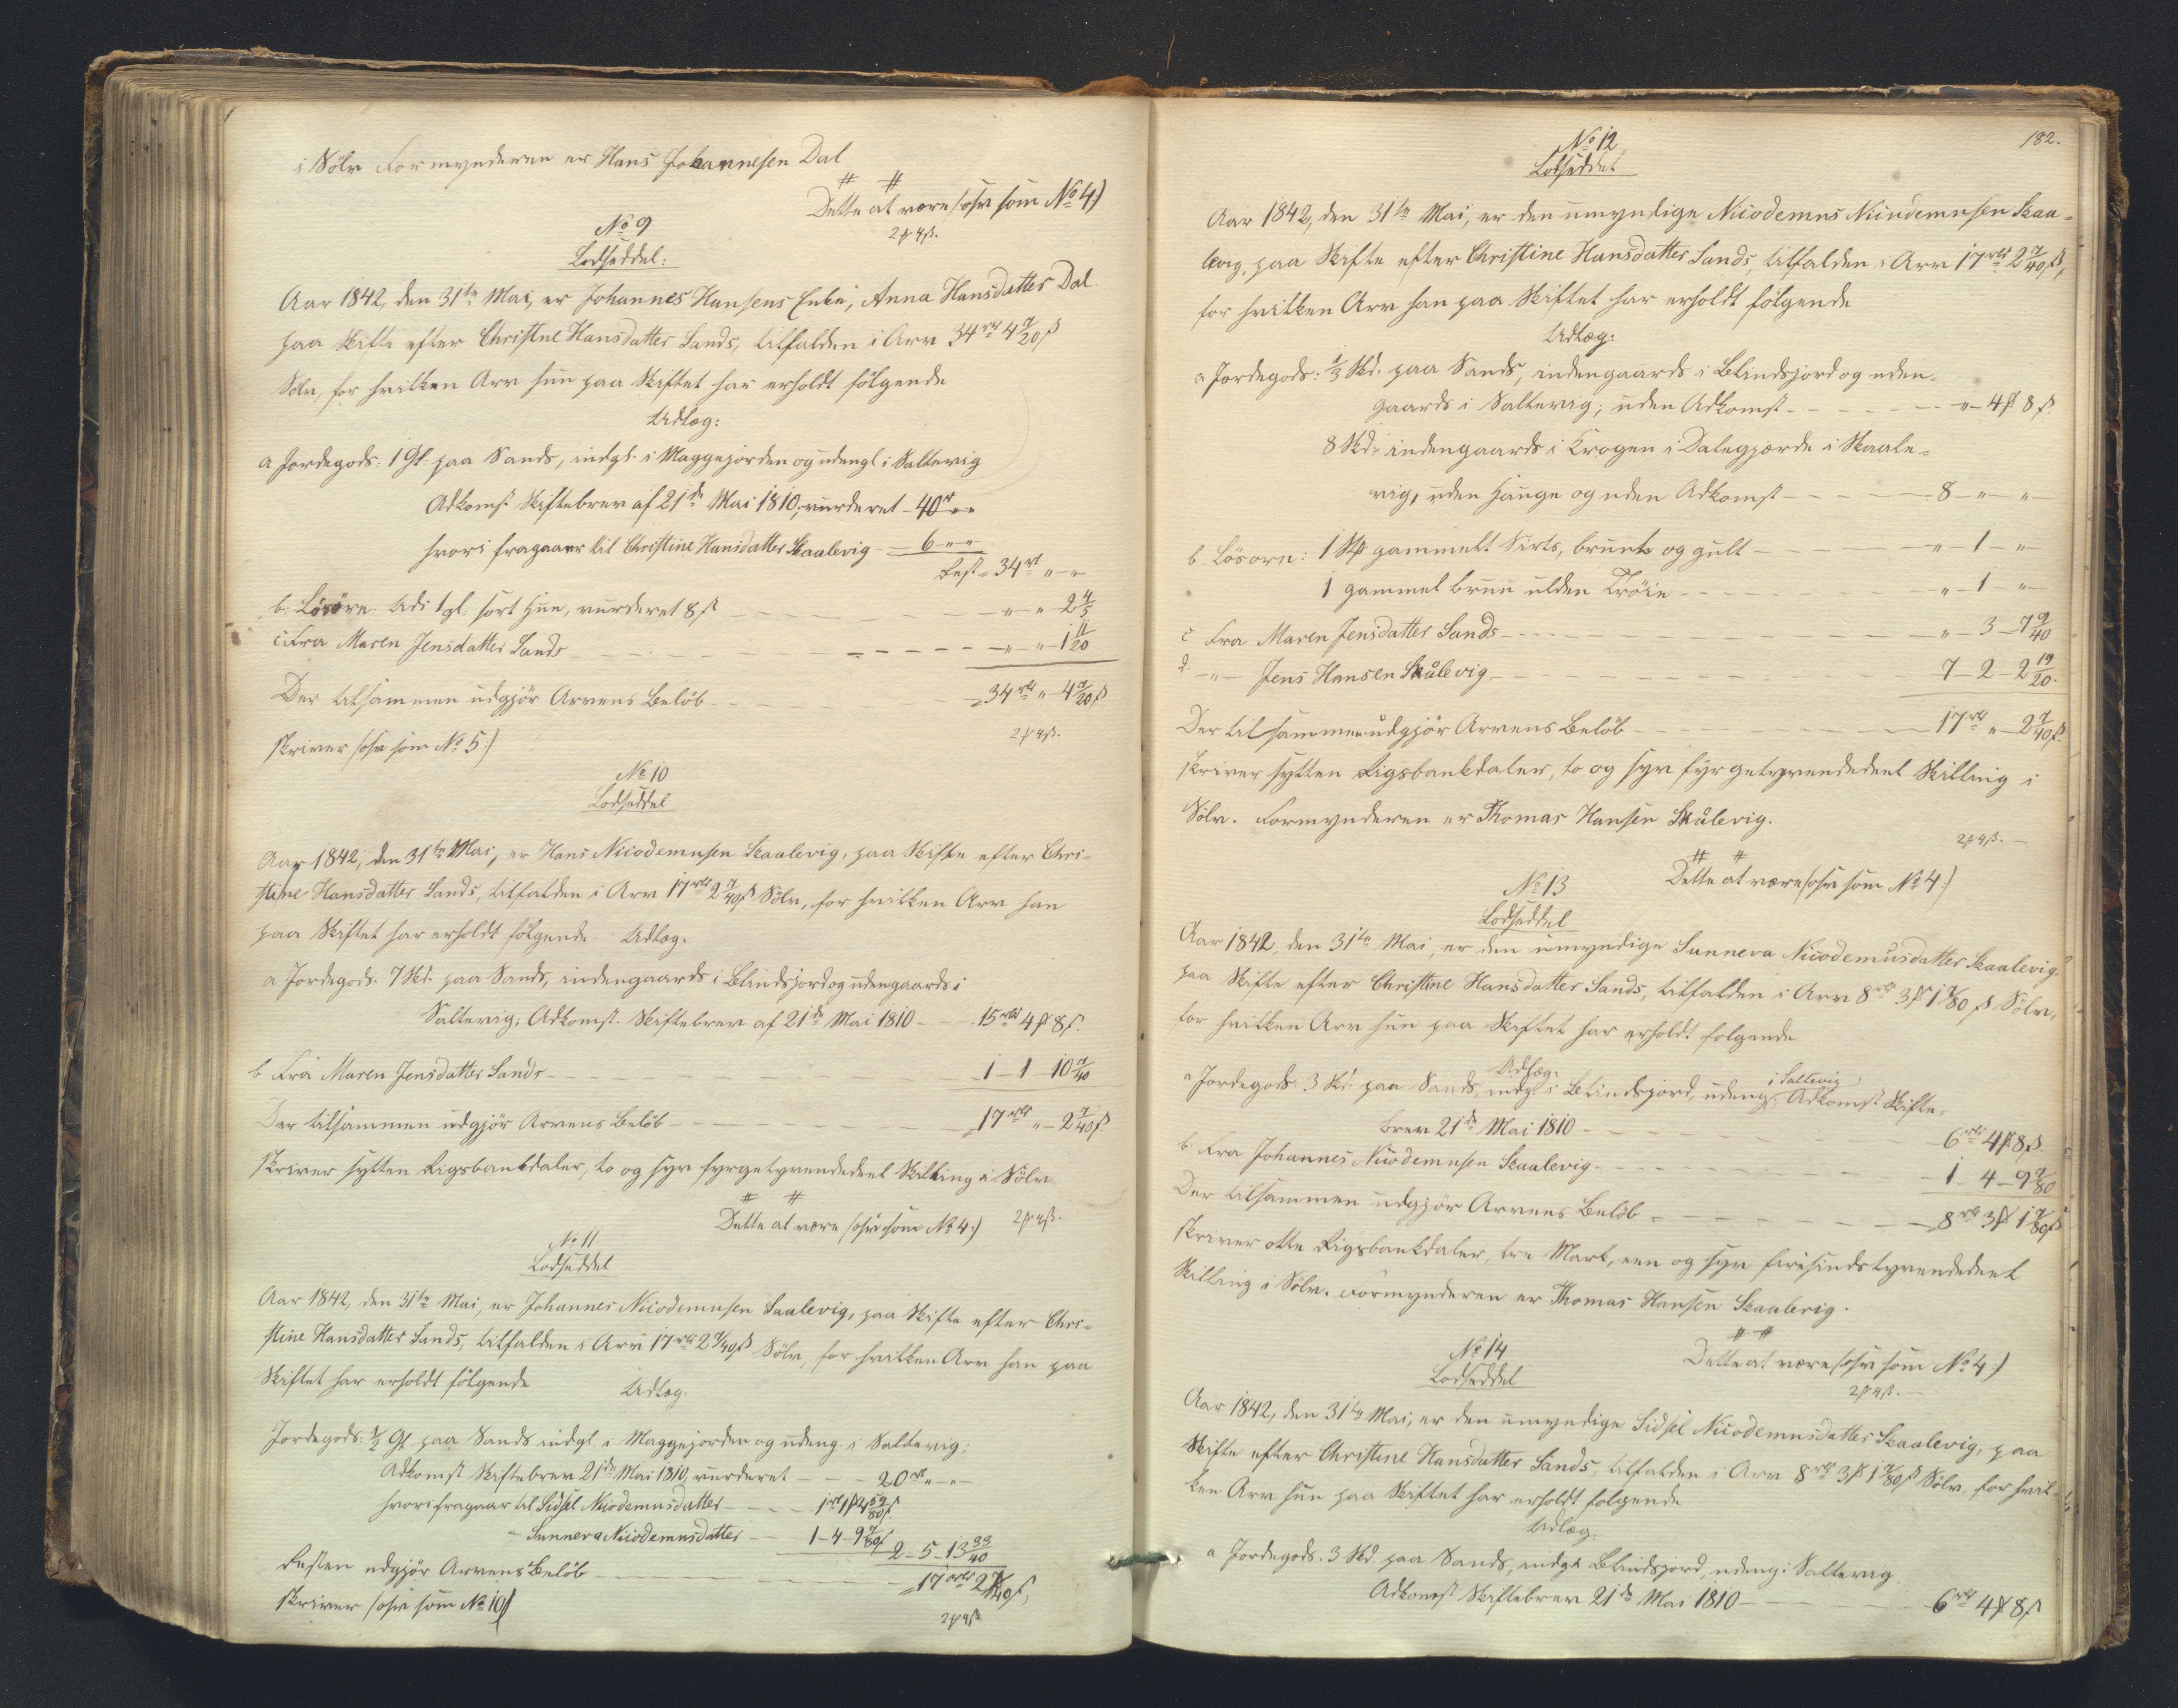 i Sölv Formynderen er Hans Johannesen Dal
# #
Dette at være /:osv som No 4:/
2 ß 4 ß.
No 9
Lodseddel:
Aar 1842, den 31te Mai, er Johannes Hansens Enke, Anna Hansdatter Dal
paa Skifte efter Christine Hansdatter Sands, tilfalden i Arv 34 rbd 4 7/20 ß
Sölv, for hvilken Arv hun paa Skiftet har erholdt fölgende
Udlæg:
a Jordegods: 1 Gl. paa Sands, indgl. i Maggejorden og udengl. i Saltevig
Adkomst Skiftebrev af 21de Mai 1810, vurderet - 40 rd " "
hvori fragaaer til Christine Hansdatter Skaalevig - 6 " "
Rest = 34 rd " "
b. Lösöre: Udi 1 gl. sort Hue, vurderet 8 ß - - - " " 2 4/5
c Fra Maren Jensdatter Sands - - - " " 1 11/20
Der tilsammen udgjör Arvens Belöb - - - = 34 rbd " 4 7/20 ß
skriver /:osv som No 5:/
2 ß 4 ß.
No 10
Lodseddel
Aar 1842, den 31te Mai, er Hans Nicodemusen Skaalevig, paa Skifte efter Chri-
stine Hansdatter Sands, tilfalden i Arv 17 rbd 2 7/40 ß Sölv, for hvilken Arv han
paa Skiftet har erholdt fölgende Udlæg.
a Jordegods. 7 Skd. paa Sands, indengaards i Blindsjord og udengaards i
Saltevig; Adkomst. Skiftebrev af 21de Mai 1810 - - 15 rbd 4 # 8 ß.
b Fra Maren Jensdatter Sands - - - 1 - 1 - 10 7/40
Der tilsammen udgjör Arvens Belöb - - - 17 rbd " - 2 7/40 ß
skriver sytten Rigsbankdaler, to og syv fyrgetyvendedeel Skilling i Sölv
# #
Dette at være /:osv som No 4:/ 2 ß 4 ß.
No 11
Lodseddel
Aar 1842, den 31te Mai, er Johannes Nicodemusen Saalevig, paa Skifte efter Chri-
stine Hansdatter Sands, tilfalden i Arv 17 rbd 2 7/40 ß Sölv, for hvilken Arv han paa
Skiftet har erholdt fölgende Udlæg.
Jordegods: 1/2 Gl. paa Sands indgl. i Maggejorden og udeng. i Saltevig;
Adkomst Skiftebrev 21de Mai 1810, vurderet - - - 20 rd " "
hvori fragaar til Sidsel Nicodemusdatter - - - 1 rd 1 # 4 59/80 ß.
- Sunneva Nicodemusdatter - - 1 - 4 - 9 7/80 ß 2 - 5 - 13 33/40
Resten udgjör Arvens Belöb - - - = 17 rbd 2 7/40 ß,
skriver /:osv som No 10:/
2 ß 4 ß
182.
No 12
Lodseddel
Aar 1842, den 31te Mai, er den umyndige Nicodemus Nicudemusen Skaa-
levig, paa Skifte efter Christine Hansdatter Sands, tilfalden i Arv 17 rbd 2 7/40 ß,
for hvilken Arv han paa Skiftet har erholdt fölgende
Udlæg:
a Jordegods: 1/3 Skd. paa Sands, indengaards i Blindsjord og uden-
gaards i Saltevig; uden Adkomst - - - " - 4 # 8 ß.
8 Skd. indengaards i Krogen i Dalegjærde i Skaale-
vig, uden Hauge og uden Adkomst - - - 8 - " - "
b. Lösöre: 1 Stk gammelt Sirts, brunt og gult - - - " - 1 - "
1 gammel bruun ulden Tröie - - - " - 1 - "
c Fra Maren Jensdatter Sands - - - " - 3 - 7 9/40
d. - " - Jens Hansen Skålevig - - - 7 - 2 - 2 19/20.
Der tilsammen udgjör Arvens Belöb - - - 17 rbd " - 2 7/40 ß.
skriver sytten Rigsbankdaler, to og syv fyrgetyvendedeel Skilling i
Sölv. Formynderen er Thomas Hansen Skålevig.
2 ß 4 ß. -
# #
Dette at være /:osv som No 4:/
No 13
Lodseddel
Aar 1842, den 31te Mai, er den umyndige Sunneva Nicodemusdatter Skaalevig,
paa Skifte efter Christine Hansdatter Sands, tilfalden i Arv 8 rbd 3 # 1 7/80 ß Sölv,
for hvilken Arv hun paa Skiftet har erholdt folgende
Udlæg:
i Saltevig
a Jordegods: 3 Skd. paa Sands, indg. i Blindsjord, udeng. Adkomst Skifte-
brev 21de Mai 1810 - - - 6 rbd 4 # 8 ß.
b. Fra Johannes Nicodemusen Skaalevig - - - 1 - 4 - 9 7/80
Der tilsammen udgjör Arvens Belöb - - - 8 rbd 3 # 1 7/80 ß
skriver otte Rigsbankdaler, tre Mark, een og syv firesindstyvendedeel
Skilling i Sölv. Formynderen er Thomas Hansen Skaalevig.
# #
Dette at være /:osv som No 4:/
2 ß 4 ß. -
No 14
Lodseddel
Aar 1842, den 31te Mai, er den umyndige Sidsel Nicodemusdatter Skaalevig, paa
Skifte efter Christine Hansdatter Sands, tilfalden i Arv 8 rbd 3 # 1 7/80 ß Sölv, for hvil-
ken Arv hun paa Skiftet har erholdt folgende
Udlæg.
a Jordegods. 3 Skd. paa Sands, indg. i Blindsjord, udeng. i Saltevig
Adkomst Skiftebrev 21de Mai 1810 - - - 6 rbd 4 # 8 ß